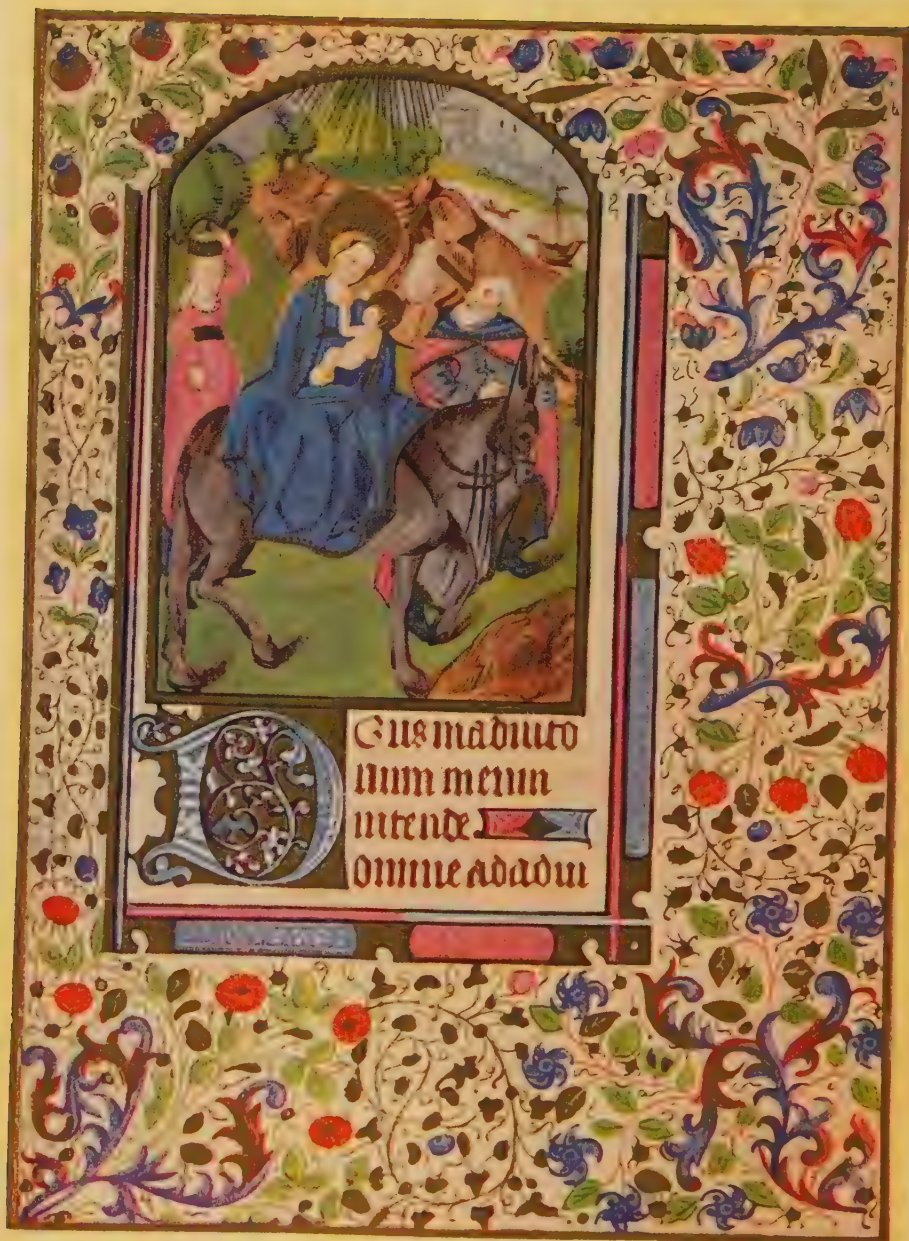 Deus in adiuto
rium meum
intende.
omine ad adiu